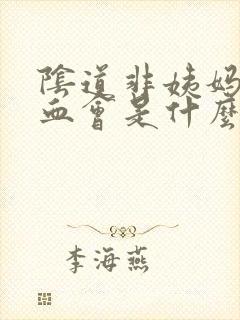 陰道非姨媽
血會是什麼
李海燕